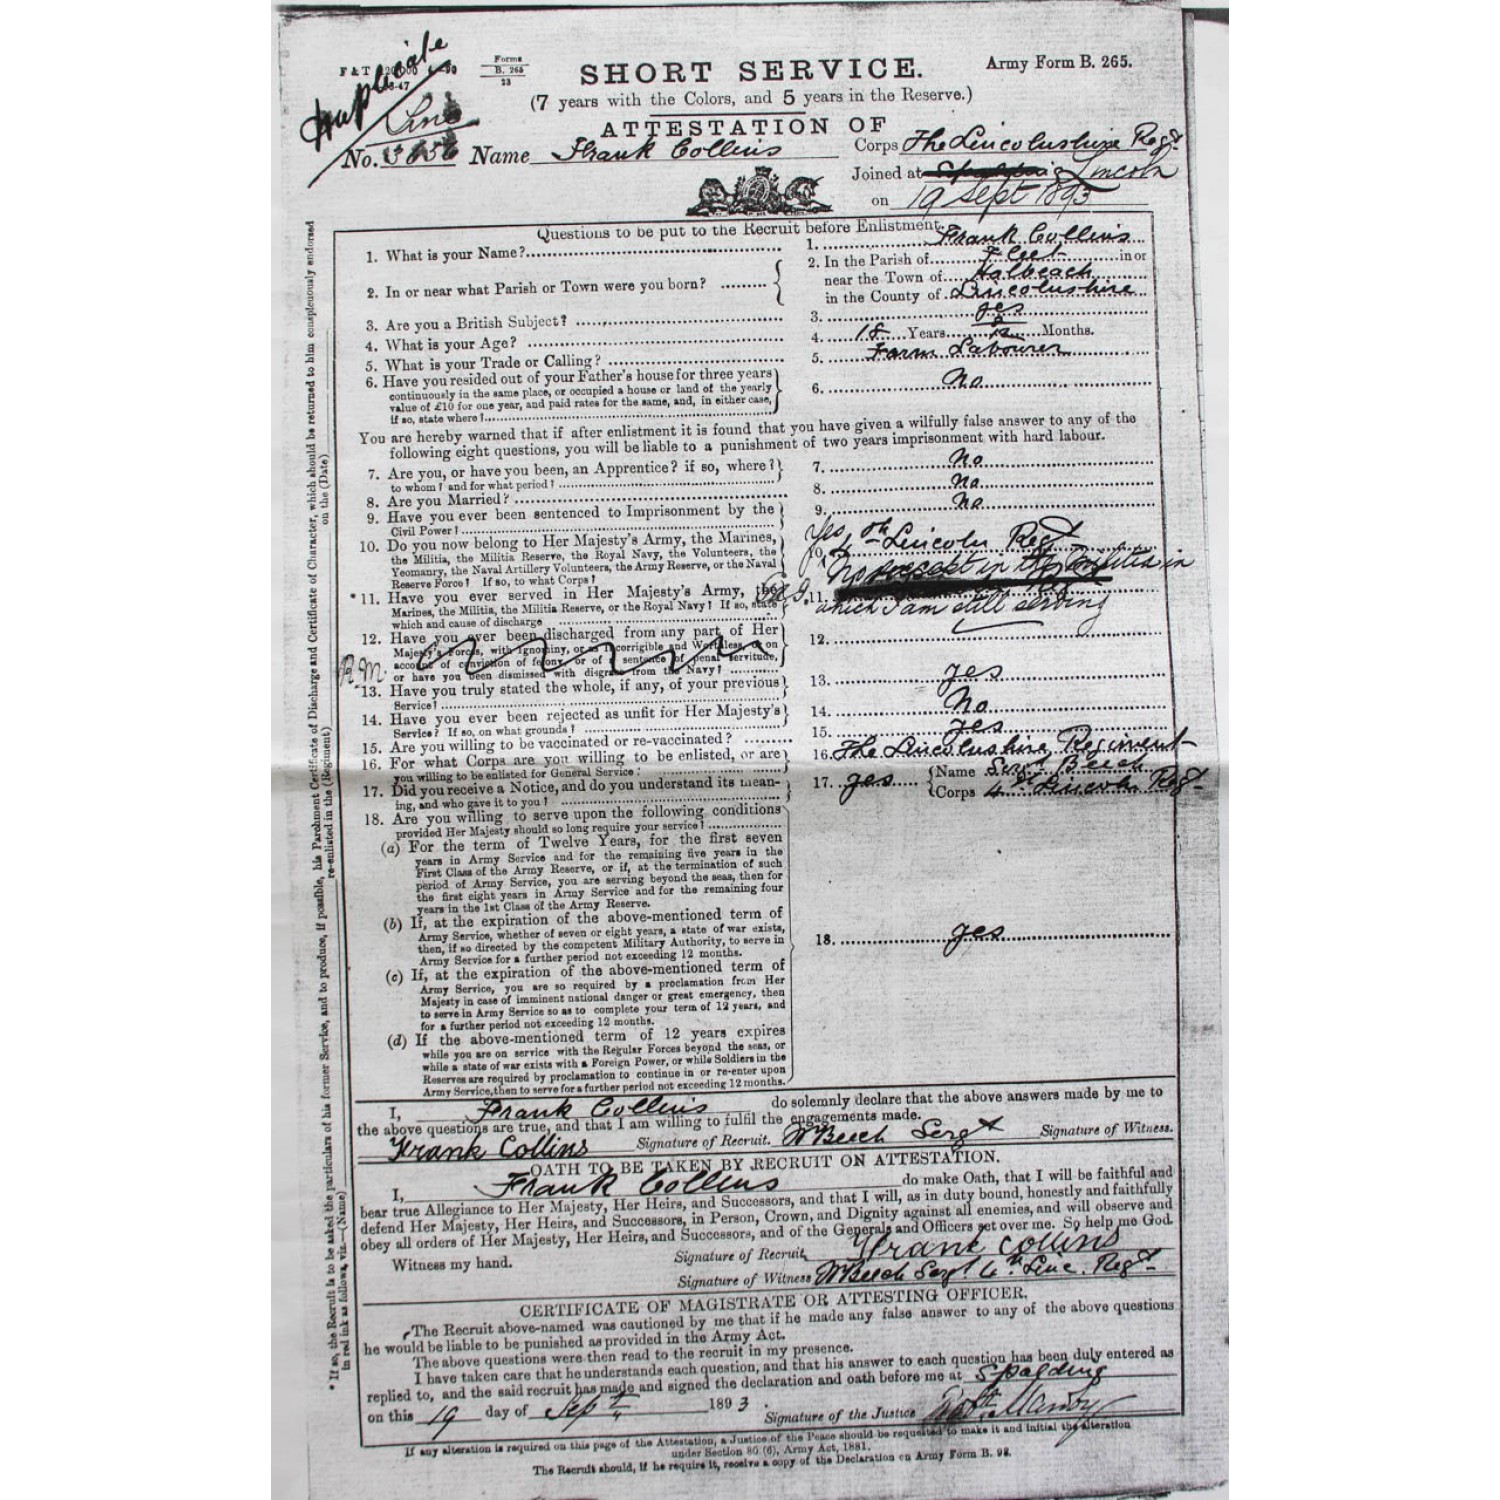 Duplicate
F & T
Forms
B. 265
23
SHORT SERVICE.
Army Form B. 265.
(7 years with the Colors, and 5 years in the Reserve.)
ATTESTATION OF
No. Name Frank Collins Corps The Lincolnshire Regt
Joined at Lincoln
on 19 Sept 1893
Questions to be put to the Recruit before Enlistment.
1. What is your Name? 1. Frank Collins
2. In or near what Parish or Town were you born? 2. In the Parish of Fleet in or
near the Town of Holbeach
in the County of Lincolnshire
3. Are you a British Subject? 3. yes
4. What is your Age? 4. 18 Years Months.
5. What is your Trade or Calling? 5. Farm Labourer
6. Have you resided out of your Father's house for three years
continuously in the same place, or occupied a house or land of the yearly
value of £10 for one year, and paid rates for the same, and, in either case,
if so, state where? 6. No
You are hereby warned that if after enlistment it is found that you have given a wilfully false answer to any of the
following eight questions, you will be liable to a punishment of two years imprisonment with hard labour.
7. Are you, or have you been, an Apprentice? if so, where?
to whom? and for what period? 7. No
8. Are you Married? 8. No
9. Have you ever been sentenced to Imprisonment by the
Civil Power? 9. No
10. Do you now belong to Her Majesty's Army, the Marines,
the Militia, the Militia Reserve, the Royal Navy, the Volunteers, the
Yeomanry, the Naval Artillery Volunteers, the Army Reserve, or the Naval
Reserve Force? If so, to what Corps? 10. Yes, 4th Lincoln Regt
*11. Have you ever served in Her Majesty's Army, the
Marines, the Militia, the Militia Reserve, or the Royal Navy? If so, state
which and cause of discharge 11. No except in the Militia in
which I am still serving
12. Have you ever been discharged from any part of Her
Majesty's Forces, with Ignominy, or as Incorrigible and Worthless, or on
account of conviction of felony, or of a sentence of penal servitude,
or have you been dismissed with disgrace from the Navy? 12.
R.M.
13. Have you truly stated the whole, if any, of your previous
Service? 13. yes
14. Have you ever been rejected as unfit for Her Majesty's
Service? If so, on what grounds? 14. No
15. Are you willing to be vaccinated or re-vaccinated? 15. yes
16. For what Corps are you willing to be enlisted, or are
you willing to be enlisted for General Service? 16. The Lincolnshire Regiment
17. Did you receive a Notice, and do you understand its mean-
ing, and who gave it to you? 17. yes Name Sergt Beech
Corps 4th Lincoln Regt
18. Are you willing to serve upon the following conditions
provided Her Majesty should so long require your service?
(a) For the term of Twelve Years, for the first seven
years in Army Service and for the remaining five years in the
First Class of the Army Reserve, or if, at the termination of such
period of Army Service, you are serving beyond the seas, then for
the first eight years in Army Service and for the remaining four
years in the 1st Class of the Army Reserve.
(b) If, at the expiration of the above-mentioned term of
Army Service, whether of seven or eight years, a state of war exists,
then, if so directed by the competent Military Authority, to serve in
Army Service for a further period not exceeding 12 months.
18. yes
(c) If, at the expiration of the above-mentioned term of
Army Service, you are so required by a proclamation from Her
Majesty in case of imminent national danger or great emergency, then
to serve in Army Service so as to complete your term of 12 years, and
for a further period not exceeding 12 months.
(d) If the above-mentioned term of 12 years expires
while you are on service with the Regular Forces beyond the seas, or
while a state of war exists with a Foreign Power, or while Soldiers in the
Reserves are required by proclamation to continue in or re-enter upon
Army Service, then to serve for a further period not exceeding 12 months.
I, Frank Collins do solemnly declare that the above answers made by me to
the above questions are true, and that I am willing to fulfil the engagements made.
Frank Collins Signature of Recruit. W Beech Sergt Signature of Witness.
OATH TO BE TAKEN BY RECRUIT ON ATTESTATION.
I, Frank Collins do make Oath, that I will be faithful and
bear true Allegiance to Her Majesty, Her Heirs, and Successors, and that I will, as in duty bound, honestly and faithfully
defend Her Majesty, Her Heirs, and Successors, in Person, Crown, and Dignity against all enemies, and will observe and
obey all orders of Her Majesty, Her Heirs, and Successors, and of the Generals and Officers set over me. So help me God.
Witness my hand. Signature of Recruit Frank Collins
Signature of Witness W Beech Sergt 4th Linc. Regt
CERTIFICATE OF MAGISTRATE OR ATTESTING OFFICER.
The Recruit above-named was cautioned by me that if he made any false answer to any of the above questions
he would be liable to be punished as provided in the Army Act.
The above questions were then read to the recruit in my presence.
I have taken care that he understands each question, and that his answer to each question has been duly entered as
replied to, and the said recruit has made and signed the declaration and oath before me at Spalding
on this 19 day of Sept 1893.
Signature of the Justice
If any alteration is required on this page of the Attestation, a Justice of the Peace should be requested to make it and initial the alteration
under Section 80 (6), Army Act, 1881.
The Recruit should, if he require it, receive a copy of the Declaration on Army Form B. 98.
* If so, the Recruit is to be asked the particulars of his former Service, and to produce, if possible, his Parchment Certificate of Discharge and Certificate of Character, which should be returned to him conspicuously endorsed
in red ink as follows, viz.—(Name) re-enlisted in the (Regiment) on the (Date)